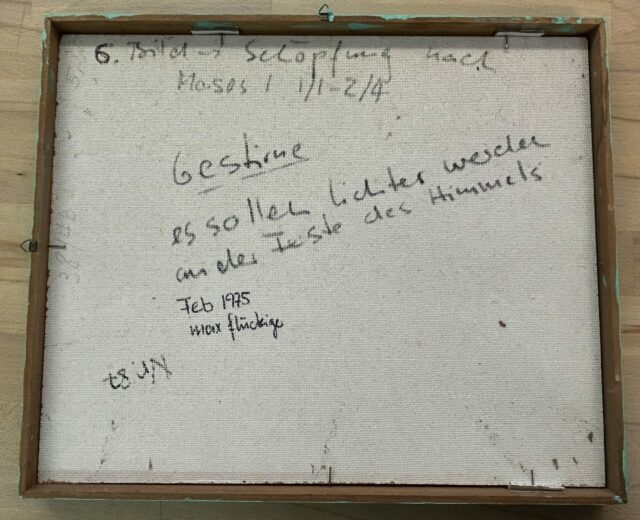 6. Bild → Schöpfung nach
Moses 1 1/1-2/4
Gestirne
es sollen Lichter werden
an der Feste des Himmels
Feb 1975
max flückige
Nr. 87